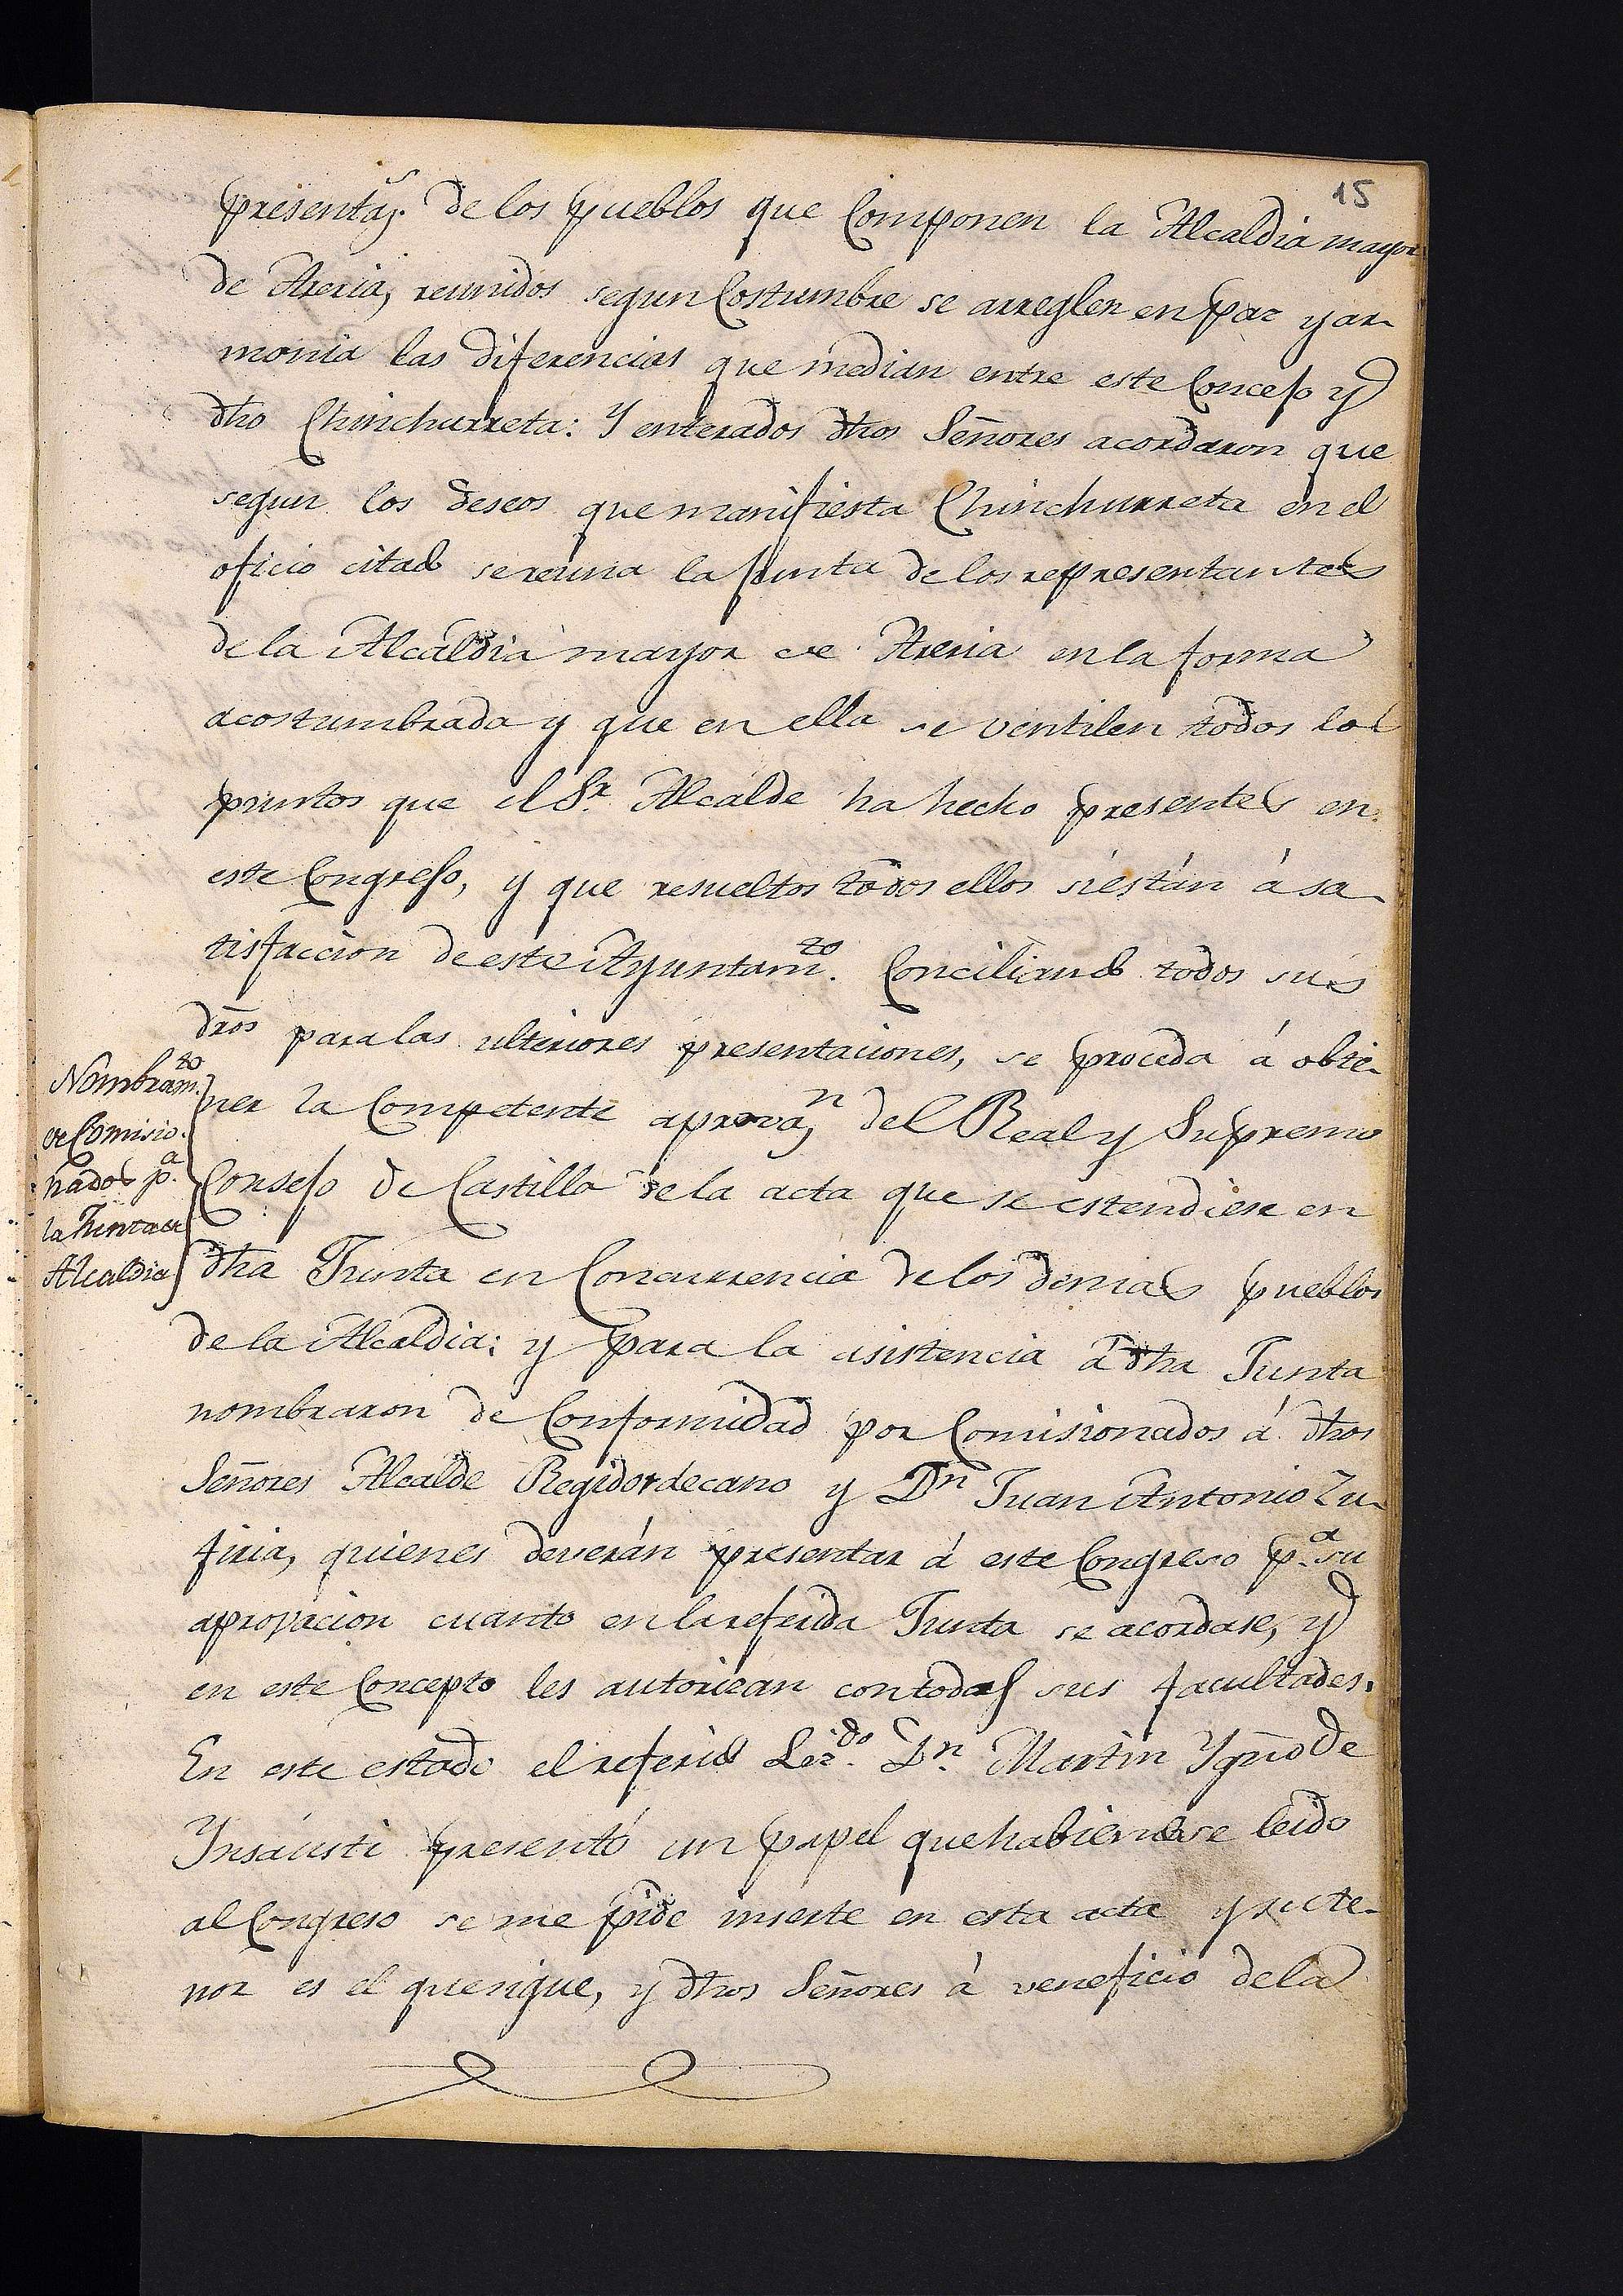 15
presentas. de los pueblos que Componen la Alcaldia mayor
de Areria, reunidos segun Costumbre se arreglen en paz y ar-
monia las diferencias que median entre este Concejo y
dho Chinchurreta: Y enterados dhos Señores acordaron que
segun los deseos que manifiesta Chinchurreta en el
oficio citado se reuna la Junta de los representantes
de la Alcaldia mayor de Areria en la forma
acostumbrada y que en ella se ventilen todos los
puntos que el Sr. Alcalde ha hecho presentes en
este Congreso, y que resueltos todos ellos si están á sa-
tisfaccion de este Ayuntamto. Conciliando todos sus
dros para las ulteriores presentaciones, se proceda á obte-
ner la Competente aprovan, del Real y Supremo
Consejo de Castilla de la acta que se estendiese en
dha Junta en Concurrencia de los demas pueblos
de la Alcaldia: y para la asistencia á dha Junta
nombraron de Conformidad por Comisionados á dhos
Señores Alcalde Regidor decano y Dn Juan Antonio Zu-
firia, quienes deverán presentar á este Congreso pa. su
aprovacion cuanto en la referida Junta se acordase, y
en este Concepto les autorizan con todas sus facultades.
En este estado el referido Lizdo. Dn. Martin Ygno de
Ynsausti presentó un papel que habiendose leido
al Congreso se me pide inserte en esta acta y su te-
nor es el que sigue, y dhos Señores á veneficio de la
Nombramto.
de Comisio-
nados pa.
la Junta de
Alcaldia